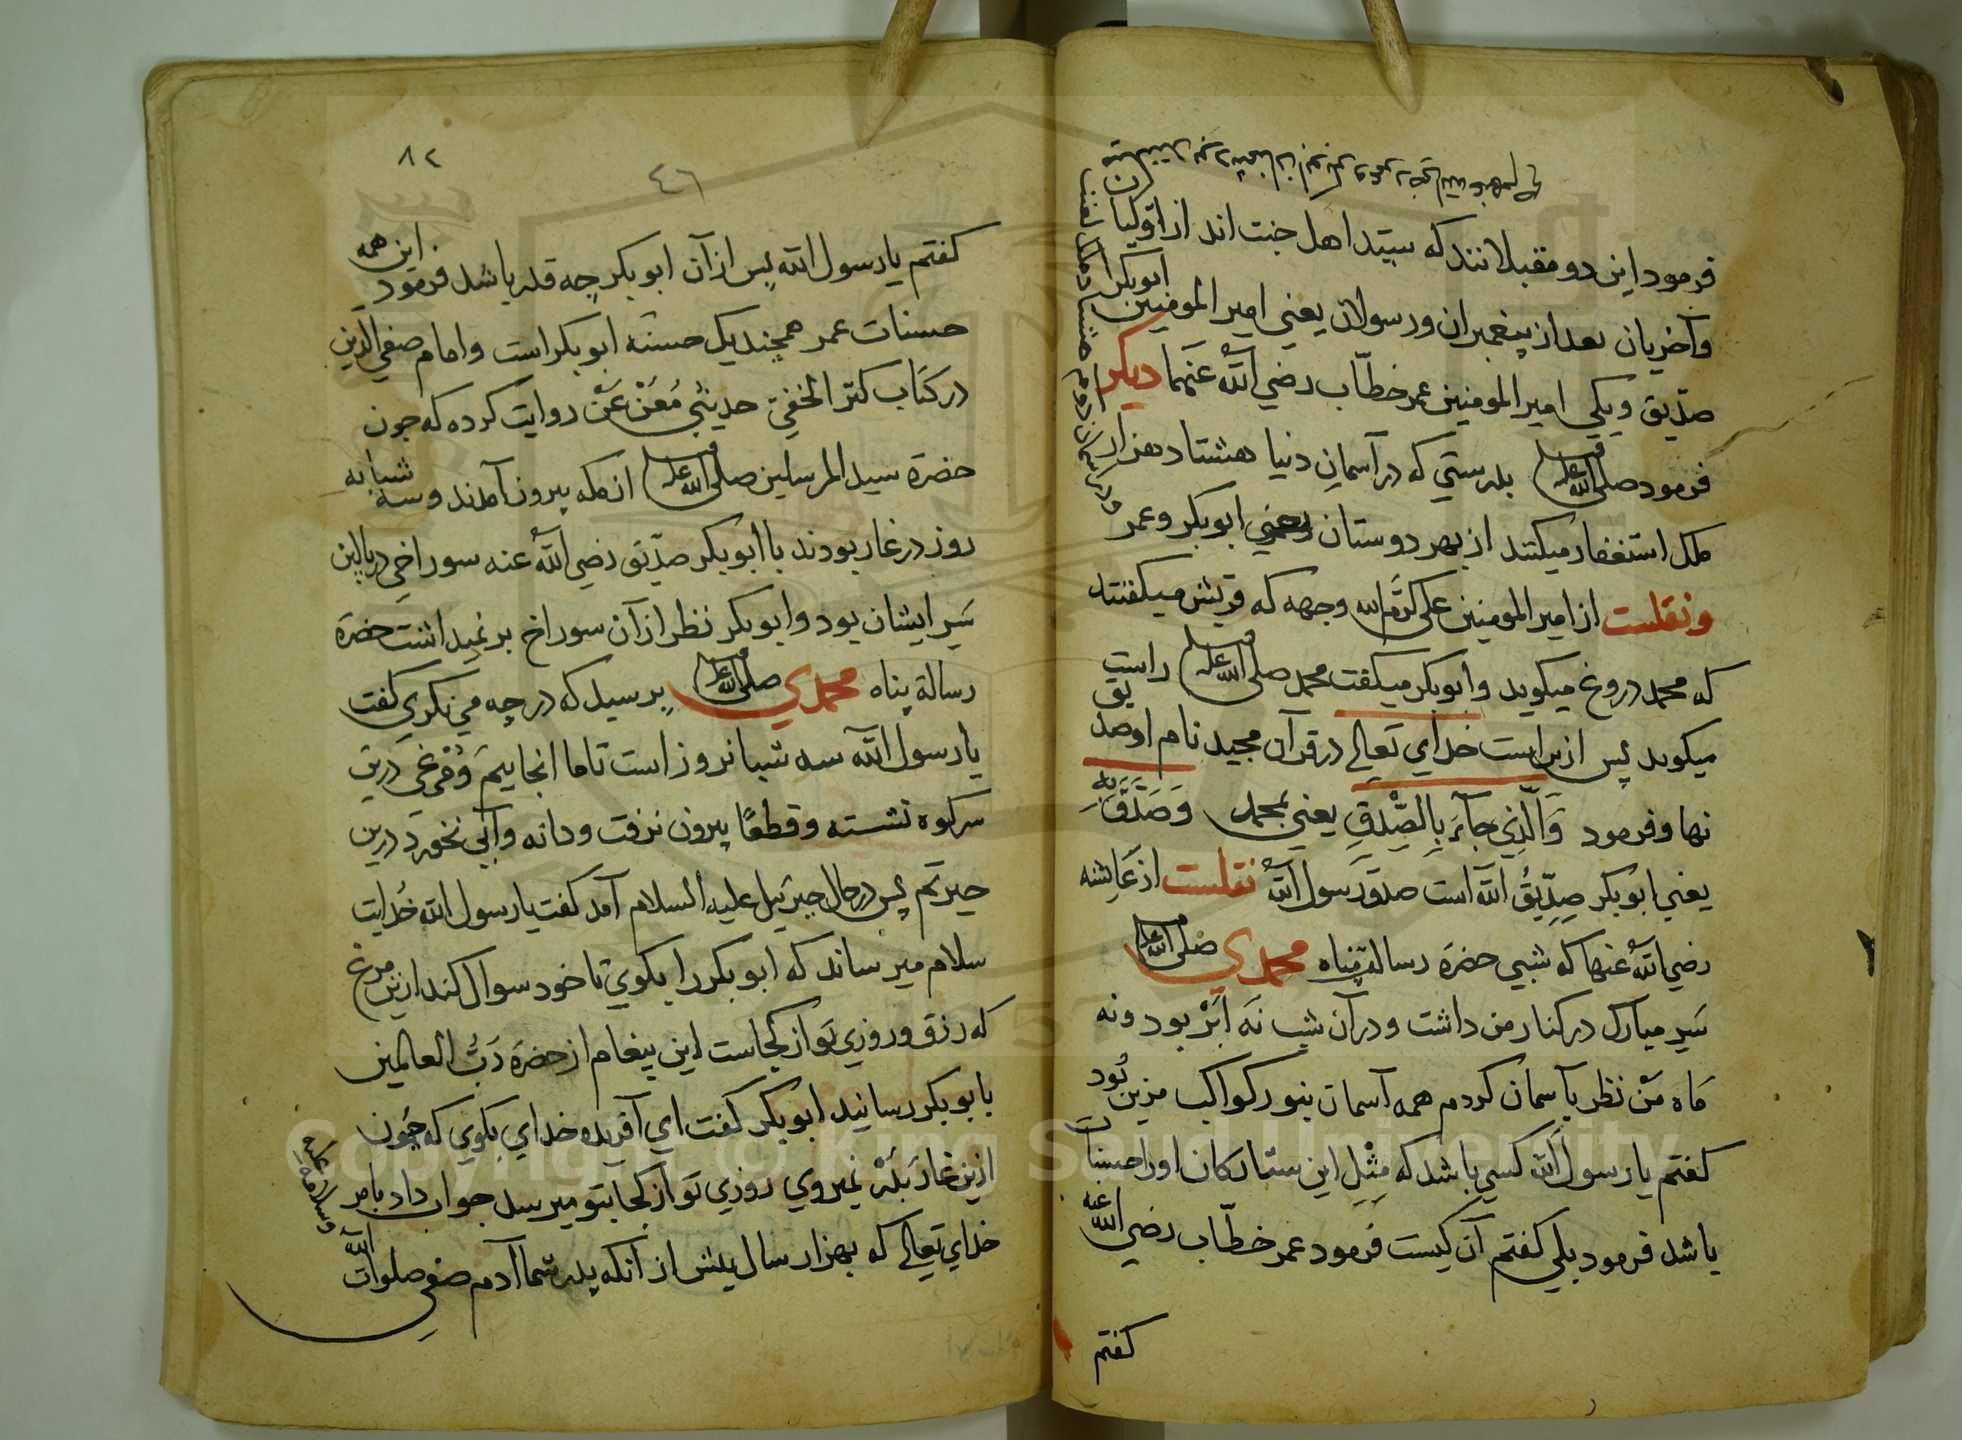 فرمود این دو مقبلانند که سید اهل جنت اند از اولیان
وآخریان بعد از پیغمبران ورسولان یعني امیر المومنین ابوبکر
صدّیق ویکي امیر المومنین عمر خطّاب رضي اللّٰه عَنهما دیکر
فرمود صلی اللّٰه علیه بدرستي که در آسمانِ دنیا هشتاد هزار
ملك استغفار میکنند از بهر دوستان یعني ابوبکر وعمر
ونقلست از امیر المومنین علي کرّم اللّٰه وجهه که قریش میکفتند
که محمد دروغ میکوید وابوبکر میکفت محمد صلی اللّٰه علیه راست
میکوید پس ازین است خداي تعالی در قرآن مجید نام او صدیق
نهاد وفرمود وَالَّذِي جآءَ بِالصِّدْقِ یعني محمد وَصَدَّقَ بِهِ
یعني ابوبکر صِدِّیقُ اللّٰه است صدق رَسول اللّٰه نقلست از عَایشه
رضي اللّٰه عنها که شبي حضرة رسالة پناه محمدي صلی اللّٰه علیه
سَرِ مبارك در کنار من داشت ودر آن شب نَه اَبْر بود ونه
مَاه مَنْ نظر بآسمان کردم همه آسمان بنور کواکب مزین بُود
کفتم یا رسول اللّٰه کسي باشد که مِثْلِ این ستارکان اورا حسنات
باشد فرمود بلي کفتم آن کیست فَرمود عمر خطّاب رضي اللّٰه عنه
کفتم
۸۲
٤٦
کفتم یا رسول اللّٰه پس از آن ابوبکر چه قدر باشد فرمود این همه
حسنات عمر همچند یك حسنه ابوبکر است وامام صفي الدین
در کتاب کنز الخفيّ حدیثي مُعَنْعَنْ روایت کرده که چون
حضرة سید المرسلین صلی اللّٰه علیه از مکه بیرون آمدند وسه شبانه
روز در غار بودند با ابوبکر صدّیق رَضي اللّٰهُ عنه سوراخي در بالین
سَرِ ایشان بود وابوبکر نظر از آن سوراخ بر نمیداشت حضرة
رسالة پناه محمدي صلی اللّٰه علیه پرسید که در چه مي نکري کفت
یا رسول اللّٰه سه شبانروز است تا ما انجاییم وَمُرْغي درین
سر کوه نشسته وقطعًا بیرون نرفت ودانه وآبي نخورد درین
حیرتم پس در حال جبرئیل علیه السلام آمد کفت یا رسول اللّٰه خُدایت
سلام میرساند که ابوبکر را بکوي تا خود سوال کند ازین مرغ
که رزق وروزي تَو از کجاست این پیغام از حضرة رَبُّ العالمین
بابوبکر رسانید ابوبکر کفت اي آفریده خداي بکوي که چون
ازین غار بَدَرْ نمیروي روزي تَو از کجا بتو میرسد جواب داد بامر
خداي تعالی که بهزار سال پیش از آنکه پدر شما آدم صفي صلوات اللّٰه
وسلامه علیه